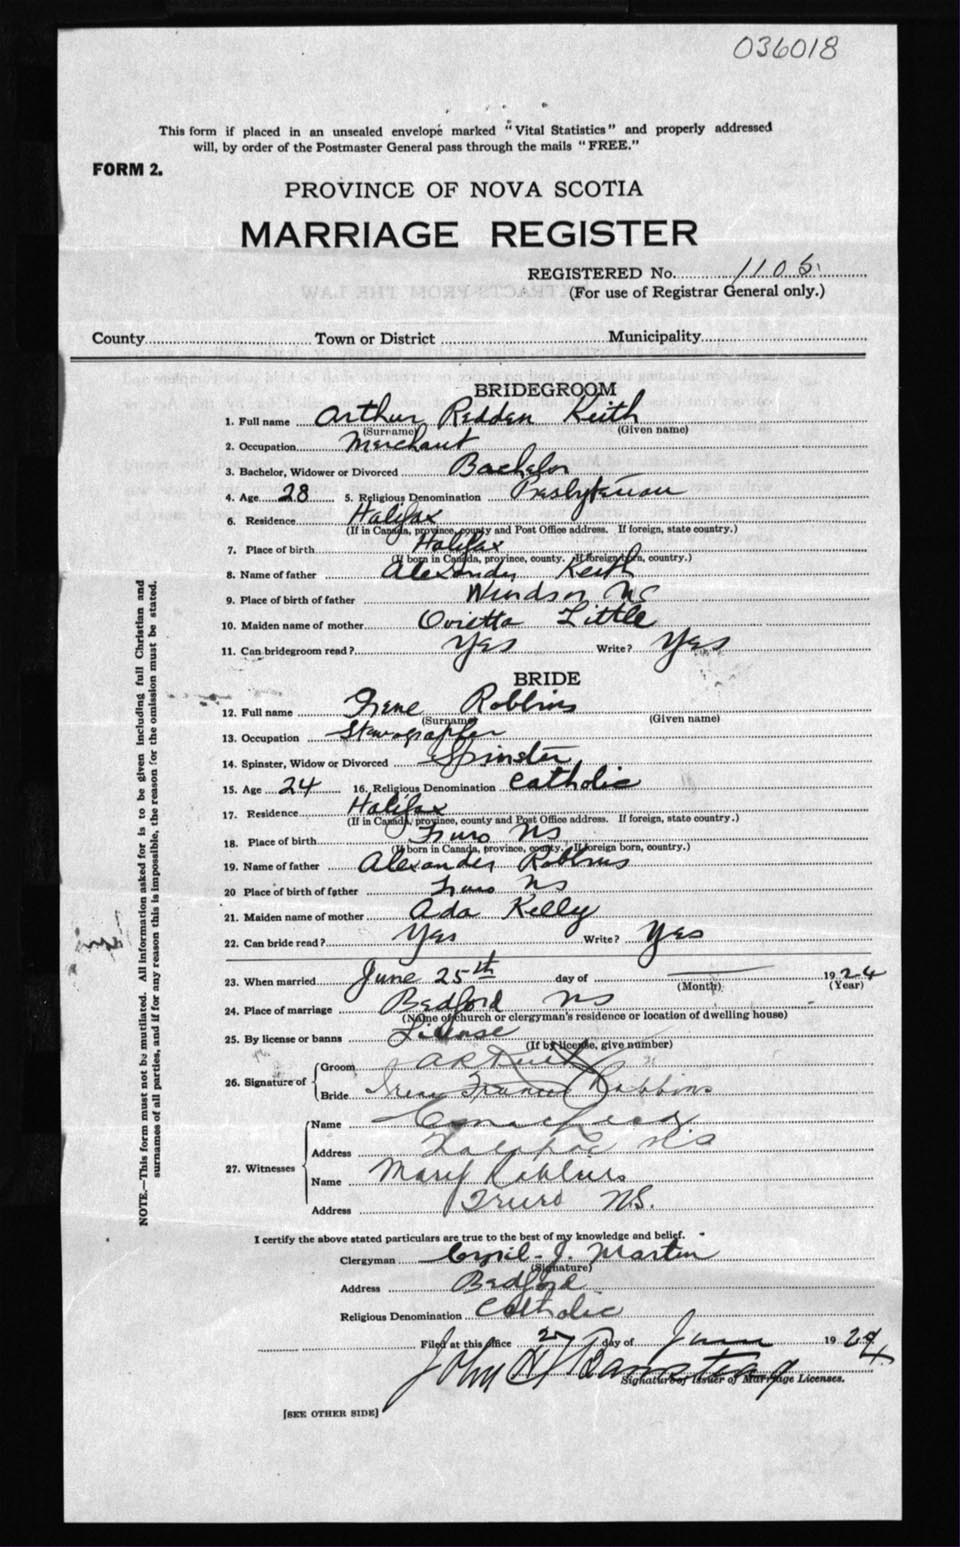 036018
This form if placed in an unsealed envelope marked "Vital Statistics" and properly addressed
will, by order of the Postmaster General pass through the mails "FREE."
FORM 2.
PROVINCE OF NOVA SCOTIA
MARRIAGE REGISTER
REGISTERED No. 1106
(For use of Registrar General only.)
County Town or District Municipality
BRIDEGROOM
1. Full name Arthur Redden Keith
(Surname) (Given name)
2. Occupation Merchant
3. Bachelor, Widower or Divorced Bachelor
4. Age 28 5. Religious Denomination Presbyterian
6. Residence Halifax
(If in Canada, province, county and Post Office address. If foreign, state country.)
7. Place of birth Halifax
(If born in Canada, province, county. If foreign born, country.)
8. Name of father Alexander Keith
9. Place of birth of father Windsor NS
10. Maiden name of mother Ovietta Little
11. Can bridegroom read? Yes Write? Yes
BRIDE
12. Full name Irene Robbins
(Surname) (Given name)
13. Occupation Stenographer
14. Spinster, Widow or Divorced Spinster
15. Age 24 16. Religious Denomination Catholic
17. Residence Halifax
(If in Canada, province, county and Post Office address. If foreign, state country.)
18. Place of birth Truro NS
(If born in Canada, province, county. If foreign born, country.)
19. Name of father Alexander Robbins
20 Place of birth of father Truro NS
21. Maiden name of mother Ada Kelly
22. Can bride read? Yes Write? Yes
23. When married June 25th day of 1924
(Month) (Year)
24. Place of marriage Bedford NS
(Name of church or clergyman's residence or location of dwelling house)
25. By license or banns License
(If by license, give number)
26. Signature of
Groom A R Keith
Bride Irene Frances Robbins
27. Witnesses
Name
Address Halifax NS
Name Mary Robbins
Address Truro N.S.
I certify the above stated particulars are true to the best of my knowledge and belief.
Clergyman Cyril J. Martin
(Signature)
Address Bedford
Religious Denomination Catholic
Filed at this office 27 day of June 1924
John H Barnstead
Signature of Issuer of Marriage Licenses.
[SEE OTHER SIDE]
NOTE.—This form must not be mutilated. All information asked for is to be given including full Christian and
surnames of all parties, and if for any reason this is impossible, the reason for the omission must be stated.